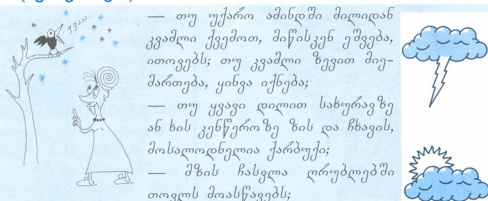 ყვაა...
— თუ უქარო ამინდში მილიდან
კვამლი ქვემოთ, მიწისკენ ეშვება,
ითოვებს; თუ კვამლი ზევით მიე-
მართება, ყინვა იქნება;
— თუ ყვავი დილით სახურავზე
ან ხის კენწეროზე ზის და ჩხავის,
მოსალოდნელია ქარბუქი;
— მზის ჩასვლა ღრუბლებში
თოვლს მოასწავებს;